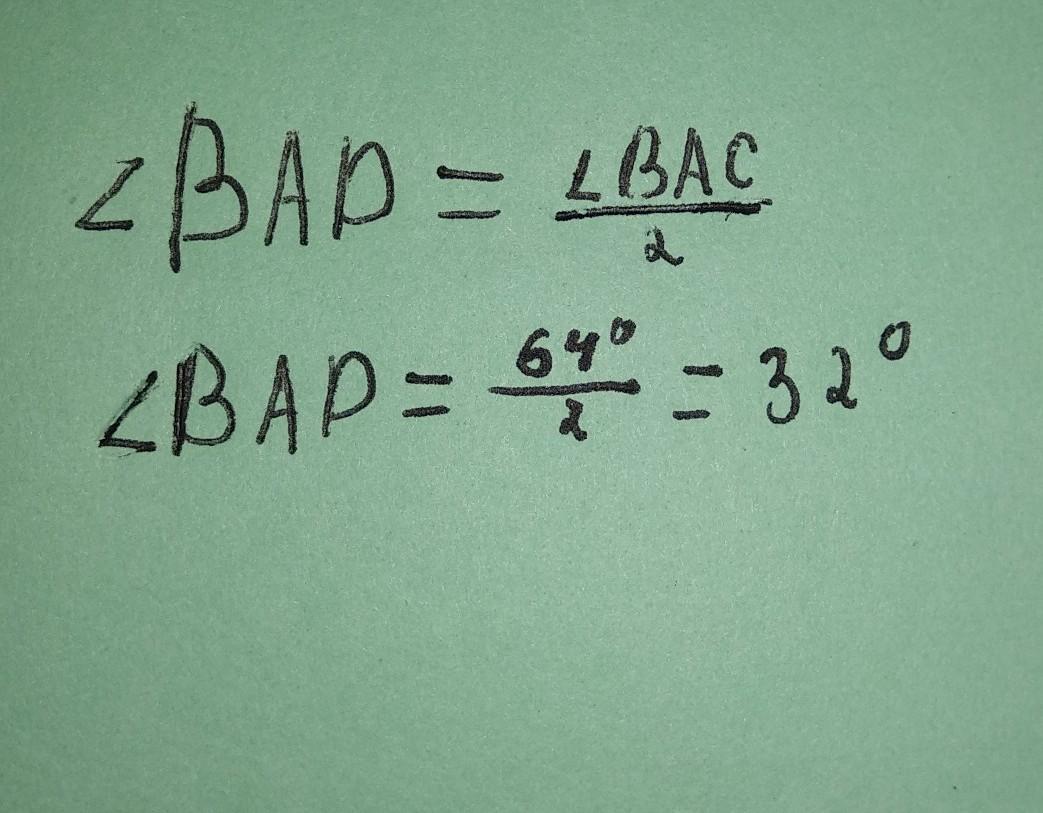 ∠BAD = ∠BAC/2
∠BAD = 64°/2 = 32°